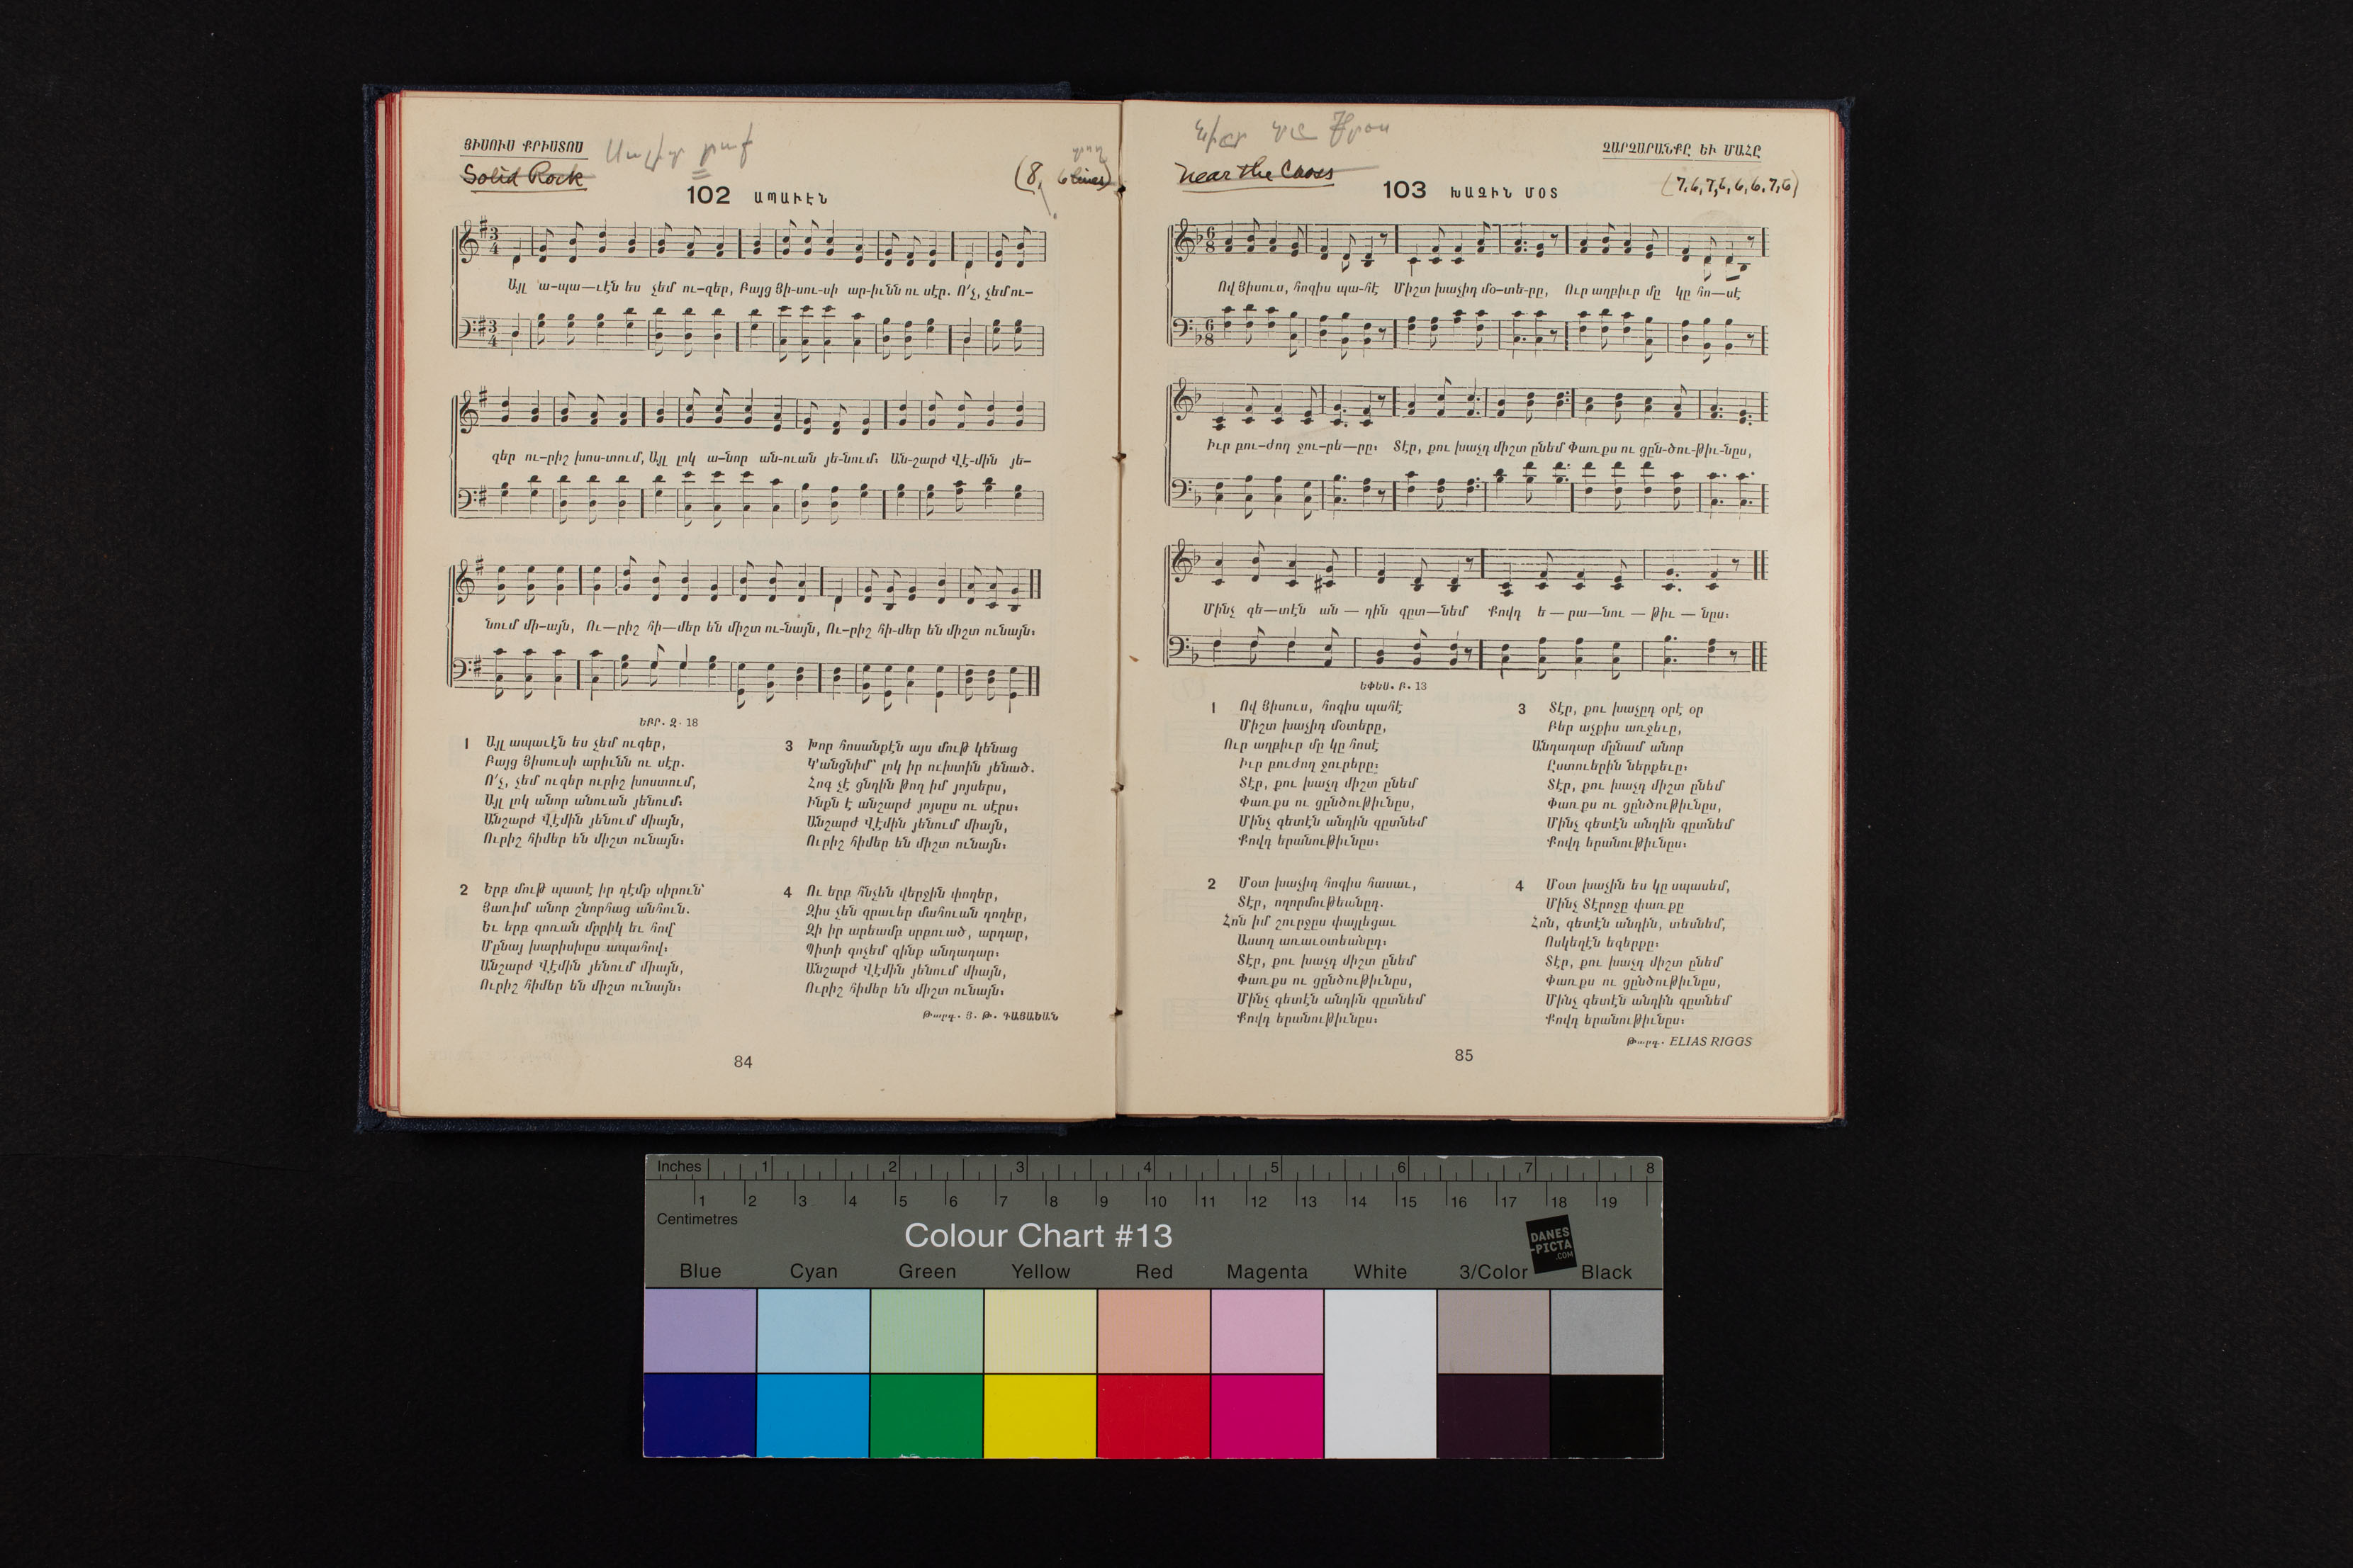 ՅԻՍՈՒՍ ՔՐԻՍՏՈՍ
Solid Rock
(8, 6 lines)
102 ԱՊԱՒԷՆ
Այլ ա-պա—ւէն ես չեմ ու-զեր, Բայց Յի-սու-սի ար-իւնն ու սէր. Ո՛չ, չեմ ու-
զեր ու-րիշ խոս-տում, Այլ լոկ ա-նոր ան-ուան յե-նում։ Ան-շարժ Վէ-մին յե-
նում մի-այն, Ու—րիշ հի—մեր են միշտ ու-նայն, Ու-րիշ հի-մեր են միշտ ունայն։
ԵԲՐ. Զ. 18
1 Այլ ապաւէն ես չեմ ուզեր,
Բայց Յիսուսի արիւնն ու սէր.
Ո՛չ, չեմ ուզեր ուրիշ խոստում,
Այլ լոկ անոր անուան յենում։
Անշարժ Վէմին յենում միայն,
Ուրիշ հիմեր են միշտ ունայն։
2 Երբ մութ պատէ իր դէմք սիրուն՝
Յառիմ անոր շնորհաց անհուն.
Եւ երբ գոռան մրրիկ եւ հով՝
Մընայ խարիսխըս ապահով։
Անշարժ Վէմին յենում միայն,
Ուրիշ հիմեր են միշտ ունայն։
3 Խոր հոսանքէն այս մութ կենաց
Կ՚անցնիմ՝ լոկ իր ուխտին յենած.
Հոգ չէ ցնդին թող իմ յոյսերս,
Ինքն է անշարժ յոյսըս ու սէրս։
Անշարժ Վէմին յենում միայն,
Ուրիշ հիմեր են միշտ ունայն։
4 Ու երբ հնչեն վերջին փողեր,
Զիս չեն գրաւեր մահուան դողեր,
Զի իր արեամբ սրբուած, արդար,
Պիտի գոչեմ զինք անդադար։
Անշարժ Վէմին յենում միայն,
Ուրիշ հիմեր են միշտ ունայն։
Թարգ. Յ. Թ. ԳԱՅԱՅԵԱՆ
84
Near the Cross
ՉԱՐՉԱՐԱՆՔԸ ԵՒ ՄԱՀԸ
(7,6,7,6,6,6,7,6)
103 ԽԱՉԻՆ ՄՕՏ
Ով Յիսուս, հոգիս պա-հէ Միշտ խաչիդ մօ-տե-րը, Ուր աղբիւր մը կը հո—սէ
Իւր բու-ժող ջու-րե—րը։ Տէր, քու խաչդ միշտ ընեմ Փառ քս ու ցըն-ծու-թիւ-նըս,
Մինչ գե—տէն ան — դին գըտ—նեմ Քովդ ե — րա—նու — թիւ — նըս։
ԵՓԵՍ. Բ. 13
1 Ով Յիսուս, հոգիս պահէ
Միշտ խաչիդ մօտերը,
Ուր աղբիւր մը կը հոսէ
Իւր բուժող ջուրերը։
Տէր, քու խաչդ միշտ ընեմ
Փառքս ու ցընծութիւնըս,
Մինչ գետէն անդին գըտնեմ
Քովդ երանութիւնըս։
2 Մօտ խաչիդ հոգիս հասաւ,
Տէր, ողորմութեանըդ.
Հոն իմ շուրջըս փայլեցաւ
Աստղ առաւօտեանըդ։
Տէր, քու խաչդ միշտ ընեմ
Փառքս ու ցընծութիւնըս,
Մինչ գետէն անդին գըտնեմ
Քովդ երանութիւնըս։
3 Տէր, քու խաչըդ օրէ օր
Բեր աչքիս առջեւը,
Անդադար մընամ անոր
Ըստուերին ներքեւը։
Տէր, քու խաչդ միշտ ընեմ
Փառքս ու ցընծութիւնըս,
Մինչ գետէն անդին գըտնեմ
Քովդ երանութիւնըս։
4 Մօտ խաչին ես կը սպասեմ,
Մինչ Տէրոջը փառքը
Հոն, գետէն անդին, տեսնեմ,
Ոսկեղէն եզերքը։
Տէր, քու խաչդ միշտ ընեմ
Փառքս ու ցընծութիւնըս,
Մինչ գետէն անդին գըտնեմ
Քովդ երանութիւնըս։
Թարգ. ELIAS RIGGS
85
Inches 1 2 3 4 5 6 7 8
1 2 3 4 5 6 7 8 9 10 11 12 13 14 15 16 17 18 19
Centimetres
Colour Chart #13
DANES
-PICTA
.COM
Blue Cyan Green Yellow Red Magenta White 3/Color Black